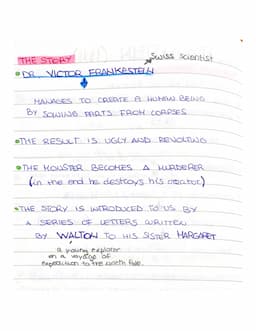 THE STORY
Swiss scientist
DR. VICTOR FRANKESTEIN
MANAGES TO CREATE A HUMAN BEING
BY SOWING PARTS FROM CORPSES
THE RESULT IS UGLY AND REVOLTING
THE MONSTER BECOMES A MURDERER
(in the end he destroys his creator)
THE STORY IS INTRODUCED TO US BY
A SERIES OF LETTERS WRITTEN
BY WALTON TO HIS SISTER MARGARET
a young explorer
on a voyage of
expedition to the north Pole.